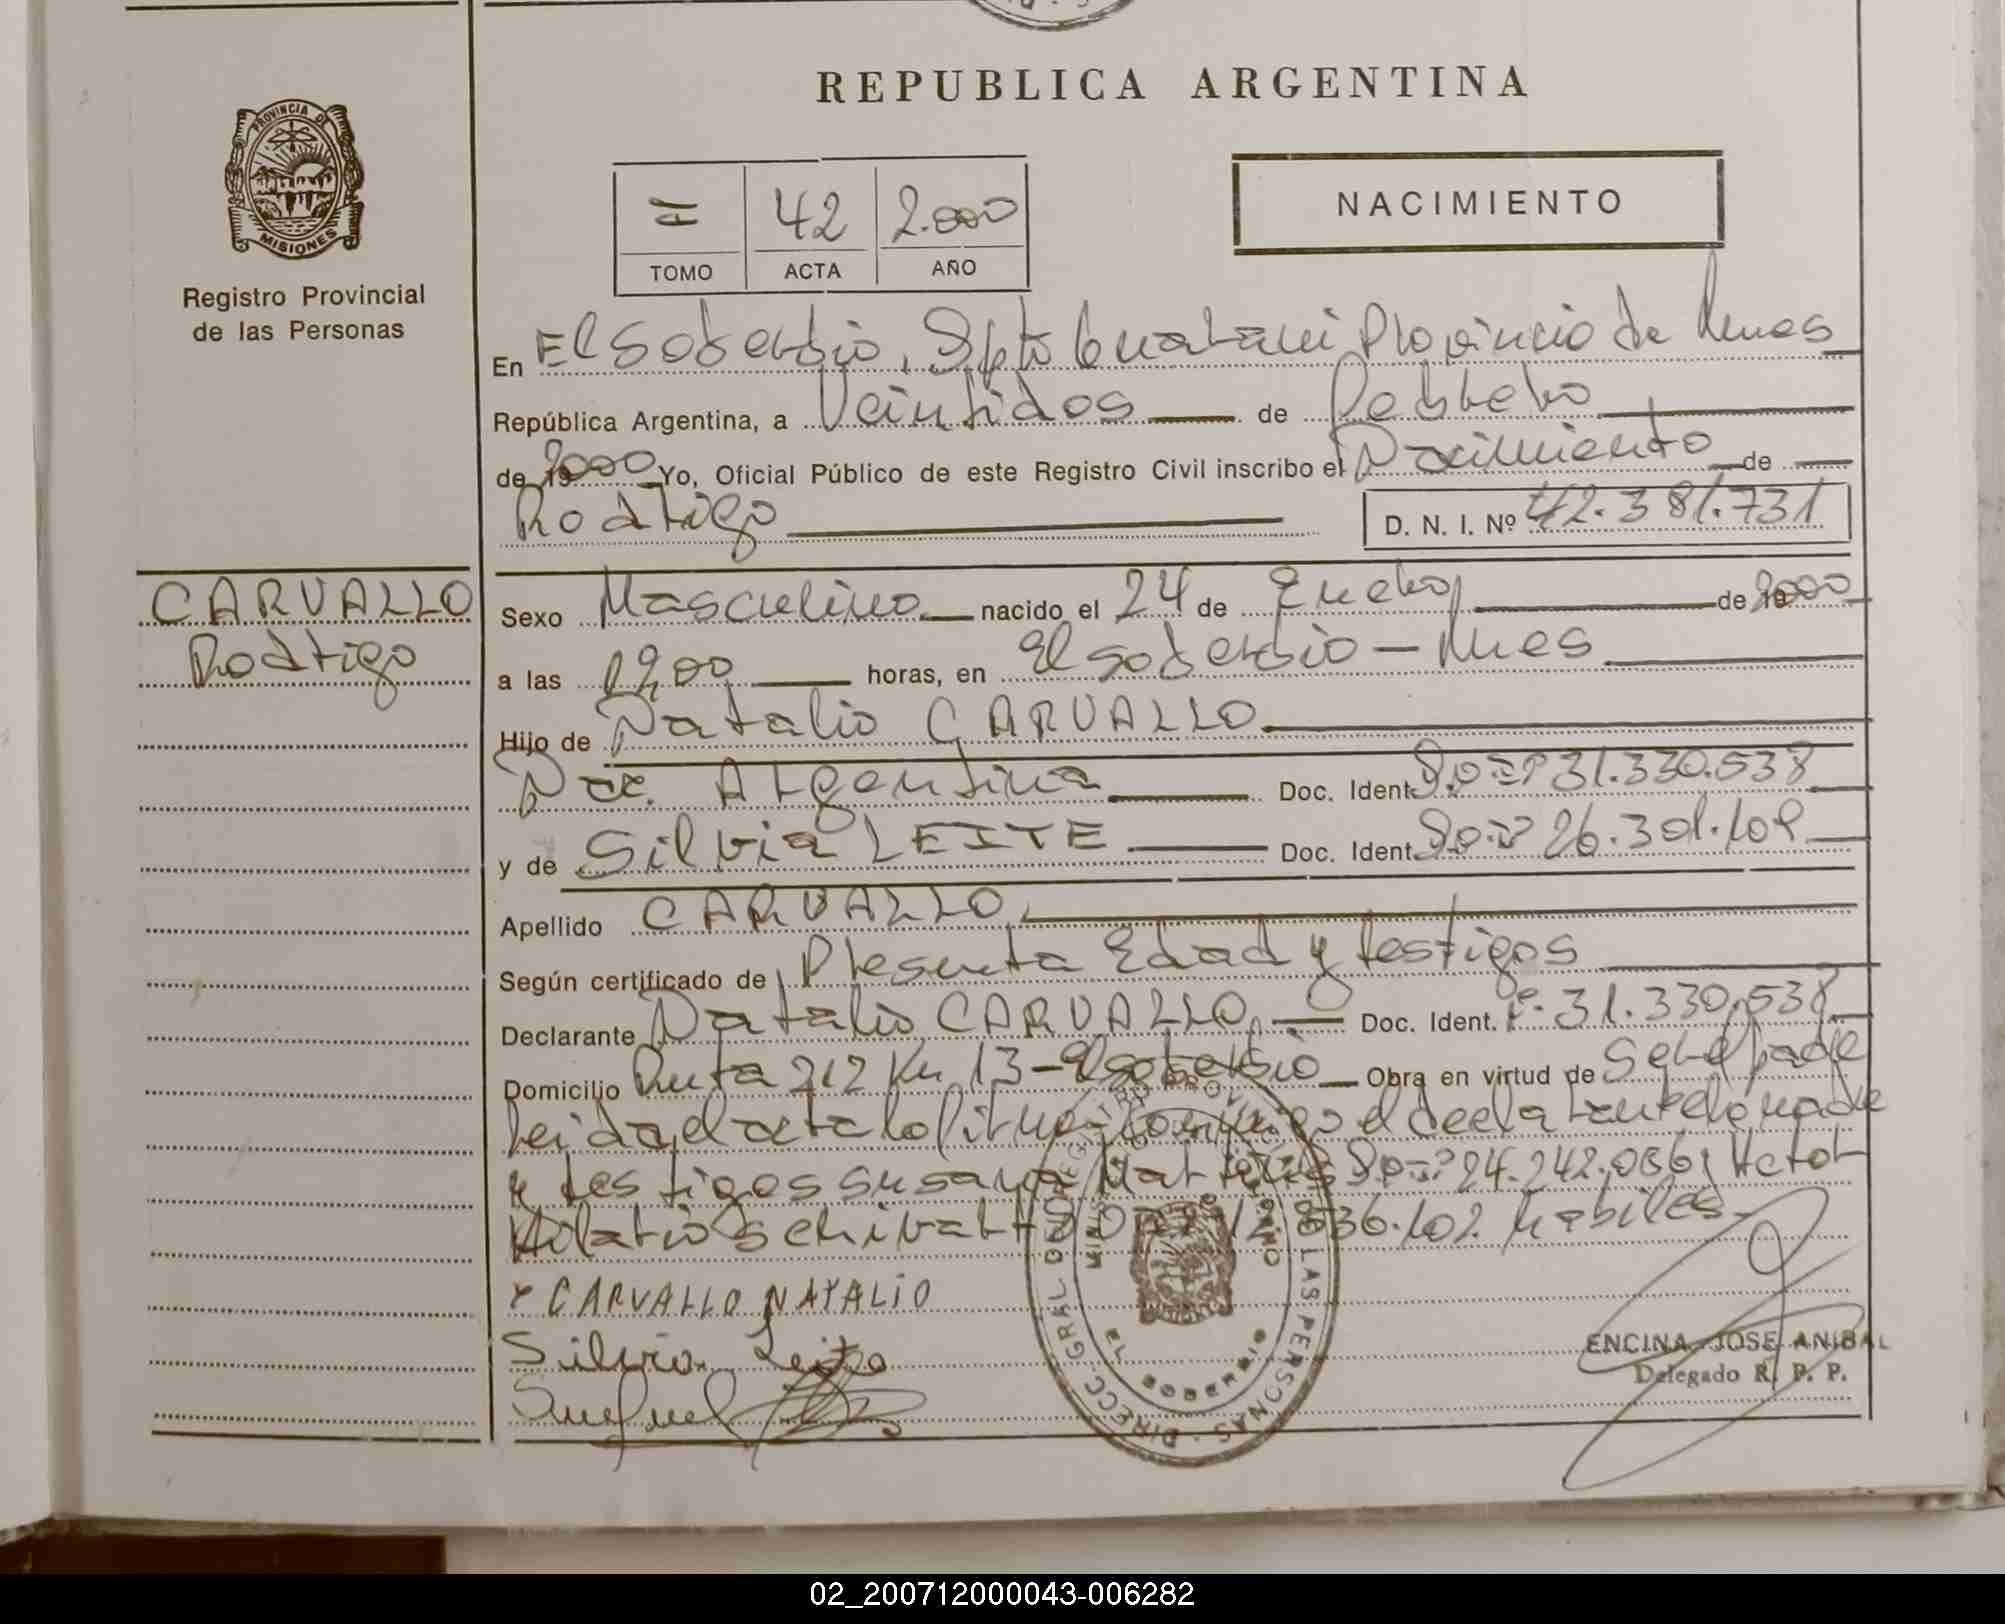 REPUBLICA ARGENTINA
PROVINCIA DE
MISIONES
Registro Provincial
de las Personas
= 42 2.000
TOMO ACTA AÑO
NACIMIENTO
En El Soberbio, Dpto Guarani Provincia de Mnes
República Argentina, a Veintidos de Febrero
de 2000 Yo, Oficial Público de este Registro Civil inscribo el Nacimiento de
Rodrigo D. N. I. Nº 42.381.731
CARVALLO
Rodrigo
Sexo Masculino nacido el 24 de Enero de 2000
a las horas, en El Soberbio - Mnes
Hijo de Natalio CARVALLO
Nac. Argentina Doc. Ident. 31.330.538
y de Silvia LEITE Doc. Ident. 26.301.109
Apellido CARVALLO
Según certificado de Presunta Edad y testigos
Declarante Natalio CARVALLO Doc. Ident. 31.330.538
Domicilio Ruta 212 Km 13 - El Soberbio Obra en virtud de Ser el padre
Leida el acta la firman conmigo el declarante la madre
y testigos Susana 24.242.036 Hector
Horacio 536.102 habiles
CARVALLO NATALIO
Silvia Leite
DIRECC. GRAL DE LAS PERSONAS
EL SOBERBIO
ENCINA JOSE ANIBAL
Delegado R. P. P.
02_200712000043-006282